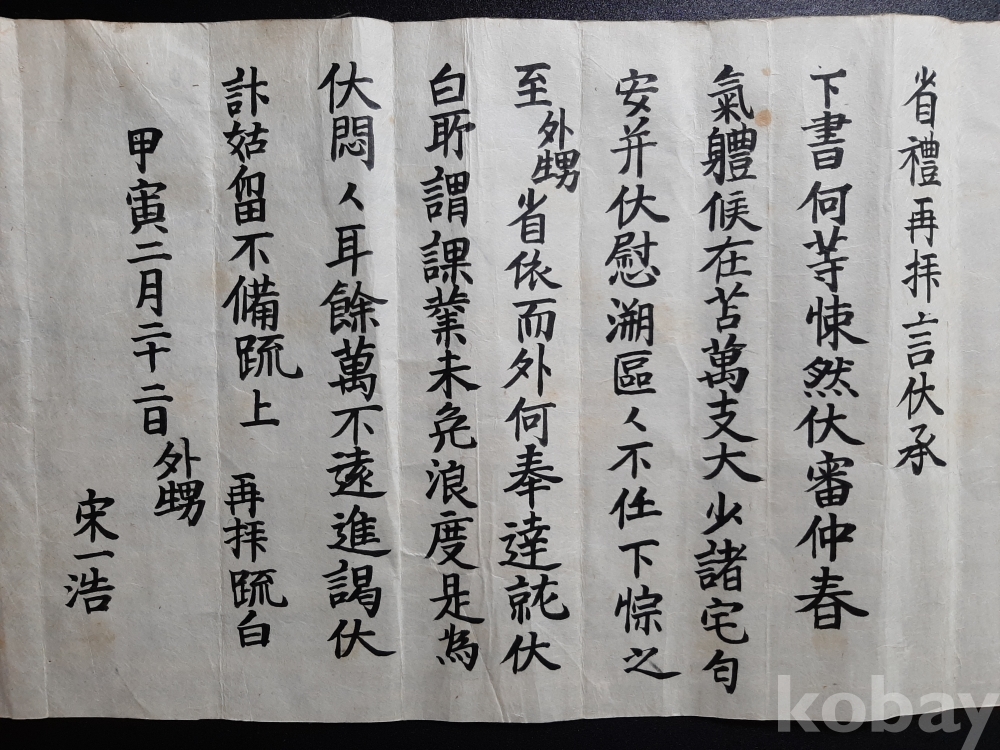 省禮再拜言伏承
下書何等悚然伏審仲春
氣軆候在苫萬支大少諸宅匀
安并伏慰溯區々不任下悰之
至外甥省依而外何奉達就伏
白所謂課業未免浪度是爲
伏悶々耳餘萬不遠進謁伏
計姑留不備疏上 再拜疏白
甲寅二月二十二日外甥
宋一浩
kobay